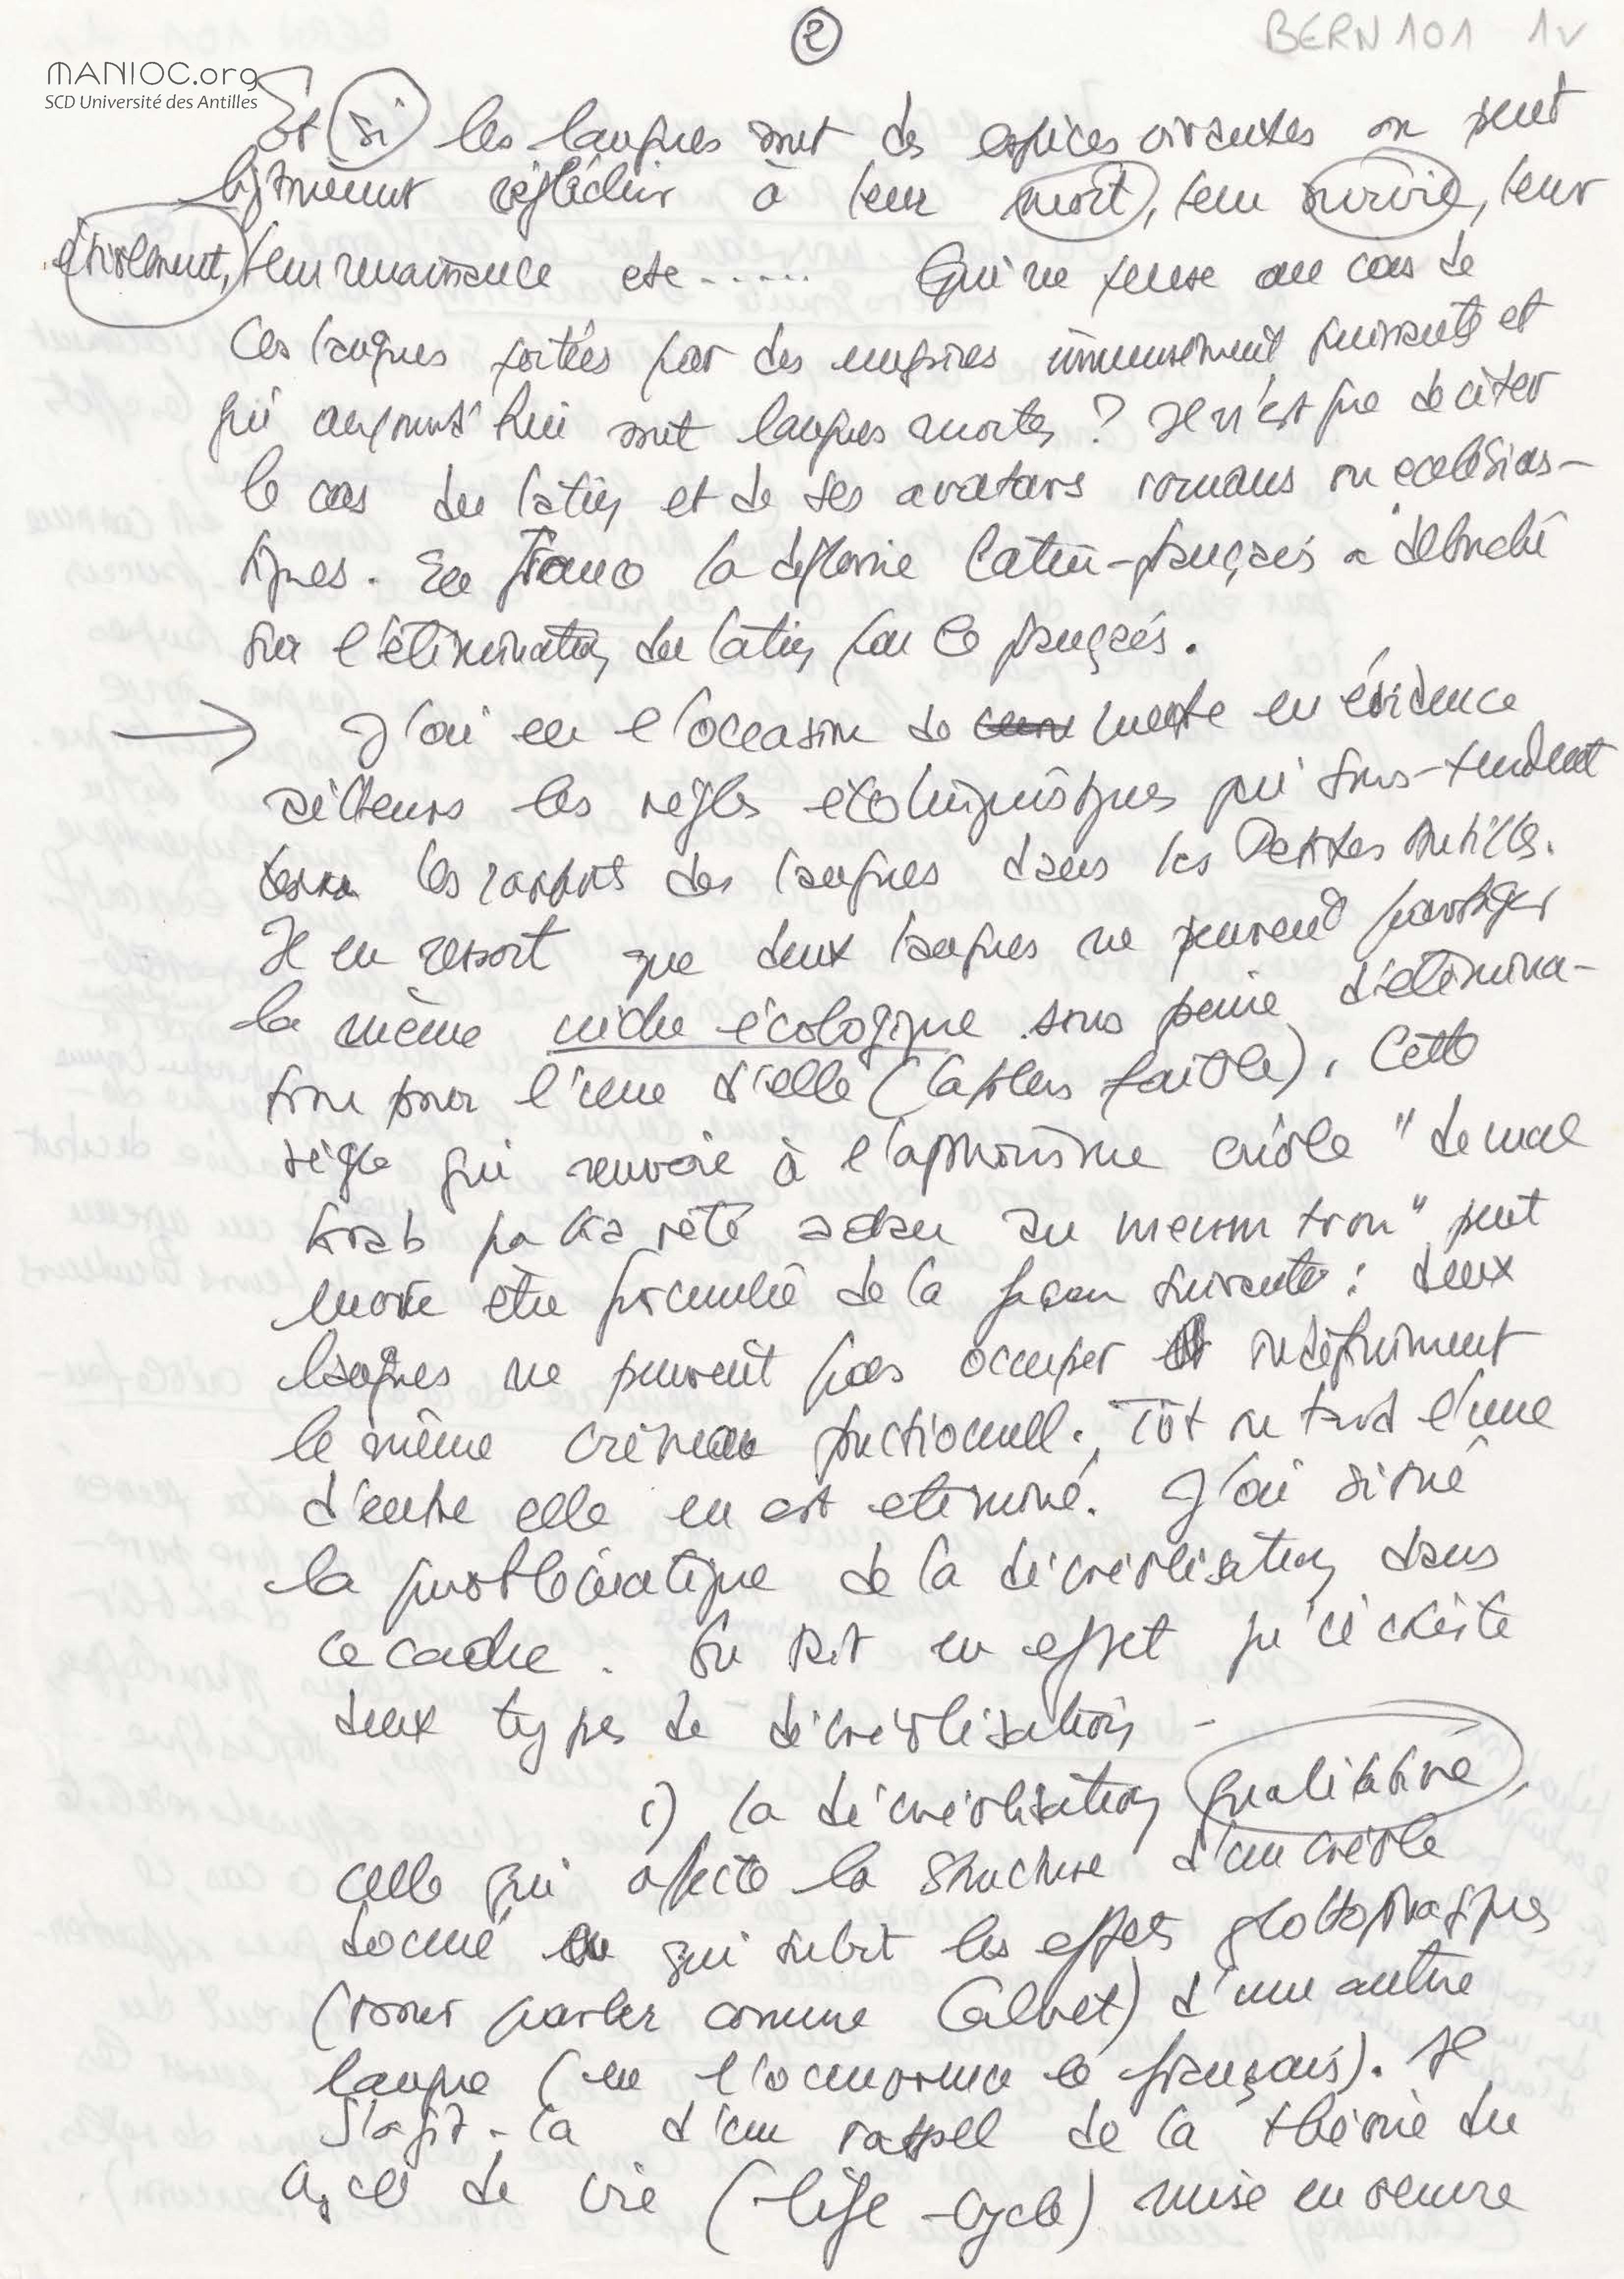 2
BERN 101 1v
MANIOC.org
SCD Université des Antilles
Et si les langues sont des espèces vivantes on peut
légitimement réfléchir à leur mort, leur survie, leur
étiolement, leur renaissance etc ...... Qu'on pense au cas de
ces langues portées par des empires immensément puissants et
qui aujourd'hui sont langues mortes ? Il n'est que de citer
le cas du latin et de ses avatars romans ou ecclésias-
tiques. En France la diglossie latin-français a débouché
sur l'élimination du latin par le français.
→ J'ai eu l'occasion de mettre en évidence
ailleurs les règles écolinguistiques qui sous-tendent
les rapports des langues dans les Petites Antilles.
Il en ressort que deux langues ne peuvent partager
la même niche écologique sous peine d'élimina-
tion pour l'une d'elle (la plus faible). Cette
règle qui renvoie à l'aphorisme créole "dé mal
krab pa ka rété adan an menm trou" peut
encore être formulée de la façon suivante : deux
langues ne peuvent pas occuper indéfiniment
le même créneau fonctionnel. Tôt ou tard l'une
d'entre elle en est éliminé. J'ai situé
la problématique de la décréolisation dans
ce cadre. On sait en effet qu'il existe
deux types de décréolisation -
1) la décréolisation qualitative,
celle qui affecte la structure d'un créole
donné qui subit les effets glottophagiques
(pour parler comme Calvet) d'une autre
langue (en l'occurrence le français). Il
s'agit-là d'un rappel de la théorie du
cycle de vie (life-cycle) mise en oeuvre